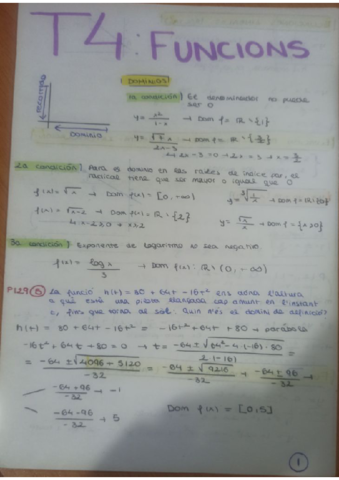 T4: FUNCIONS
1. DOMINIS
RECORREGUT
DOMINI
1a condició| El denominador no puede ser 0
y = x²/1-x → Dom f = R - {1}
y = √2x/2x-3 → Dom f = R - {3/2}
2x-3=0 → 2x=3 → x=3/2
2a condición| Para el domini en las raíces de índice par, el
radical tiene que ser mayor o igual que 0
f(x) = √x → Dom f(x) = [0, -∞)
f(x) = √x-2 → Dom f(x) = R - {2}
x-2≥0 → x≥2
3a condición| Exponente de logaritmo no sea negativo.
f(x) = log x/3 → Dom f(x): R > (0, -∞)
P129 ⑤ La funció h(t) = 80 + 64t - 16t² ens dona l'altura
a què està una pilota llançada cap amunt en l'instant
t, fins que torna al sòl. Quin és el domini de definició?
h(t) = 80 + 64t - 16t² = -16t² + 64t + 80 → parábola
-16t² + 64t + 80 = 0 → t = -64 ± √64² - 4·(-16)·80 / 2·(-16) =
= -64 ± √4096 + 5120 / -32 = -64 ± √9216 / -32 = -64 ± 96 / -32 →
-64 + 96 / -32 → -1
-64 - 96 / -32 → 5
Dom f(x) = [0,5]
1